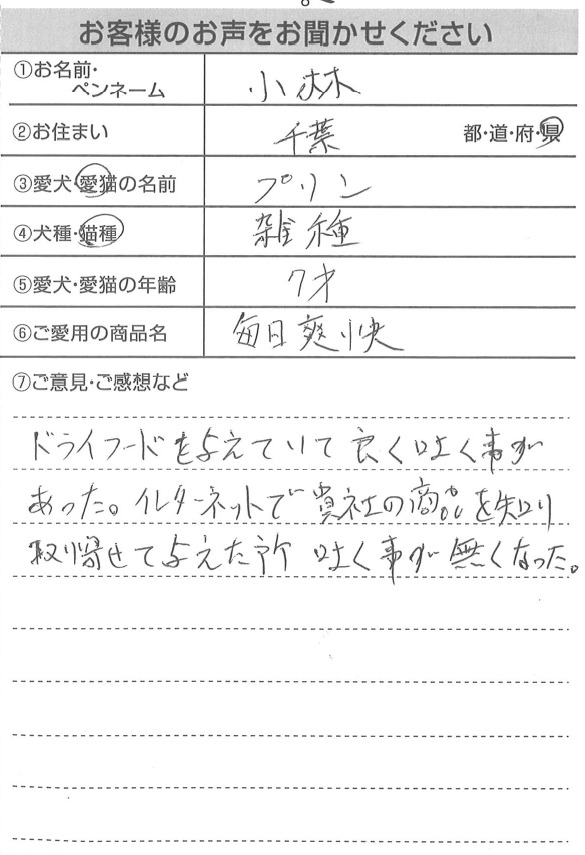 お客様のお声をお聞かせください
①お名前・
ペンネーム
小林
②お住まい
千葉
都・道・府・県
③愛犬・愛猫の名前
プリン
④犬種・猫種
雑種
⑤愛犬・愛猫の年齢
7才
⑥ご愛用の商品名
毎日爽快
⑦ご意見・ご感想など
ドライフードを与えていて良く吐く事が
あった。インターネットで貴社の商品を知り
取り寄せて与えた所 吐く事が無くなった。